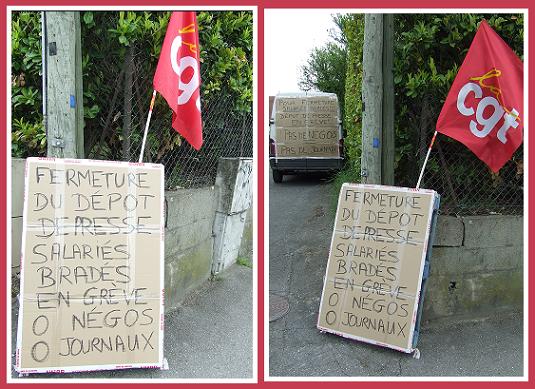 cgt
FERMETURE
DU DÉPOT
DE PRESSE
SALARIÉS
BRADÉS
EN GRÈVE
0 NÉGOS
0 JOURNAUX
la
cgt
FERMETURE
DÉPOT DE PRESSE
EN GREVE
PAS DE NÉGOS
PAS DE JOURNAUX
FERMETURE
DU DÉPOT
DE PRESSE
SALARIÉS
BRADÉS
EN GREVE
0 NÉGOS
0 JOURNAUX